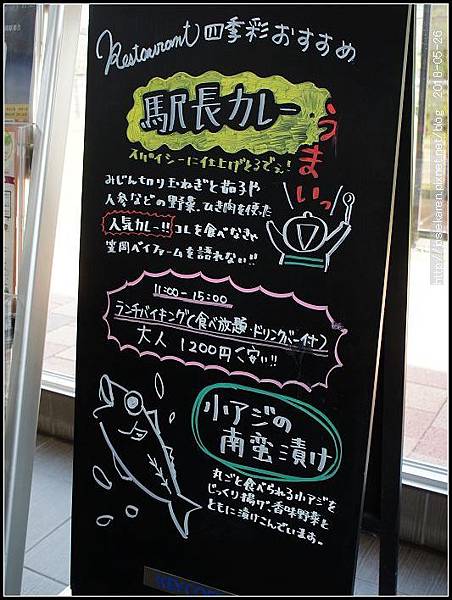 Restaurant 四季彩おすすめ
駅長カレー
うまいっ
スパイシーに仕上げとるでぇ!
みじん切り玉ねぎと茄子や
人参などの野菜、ひき肉を使った
人気カレー!! コレを食べなきゃ
笠岡ベイファームを語れない!!
11:00-15:00
ランチバイキング(食べ放題・ドリンクバー付)
大人 1200円(安い!!
小アジの
南蛮漬け
丸ごと食べられる小アジを
じっくり揚げ、香味野菜と
ともに漬けこんでいます。
2018-05-26